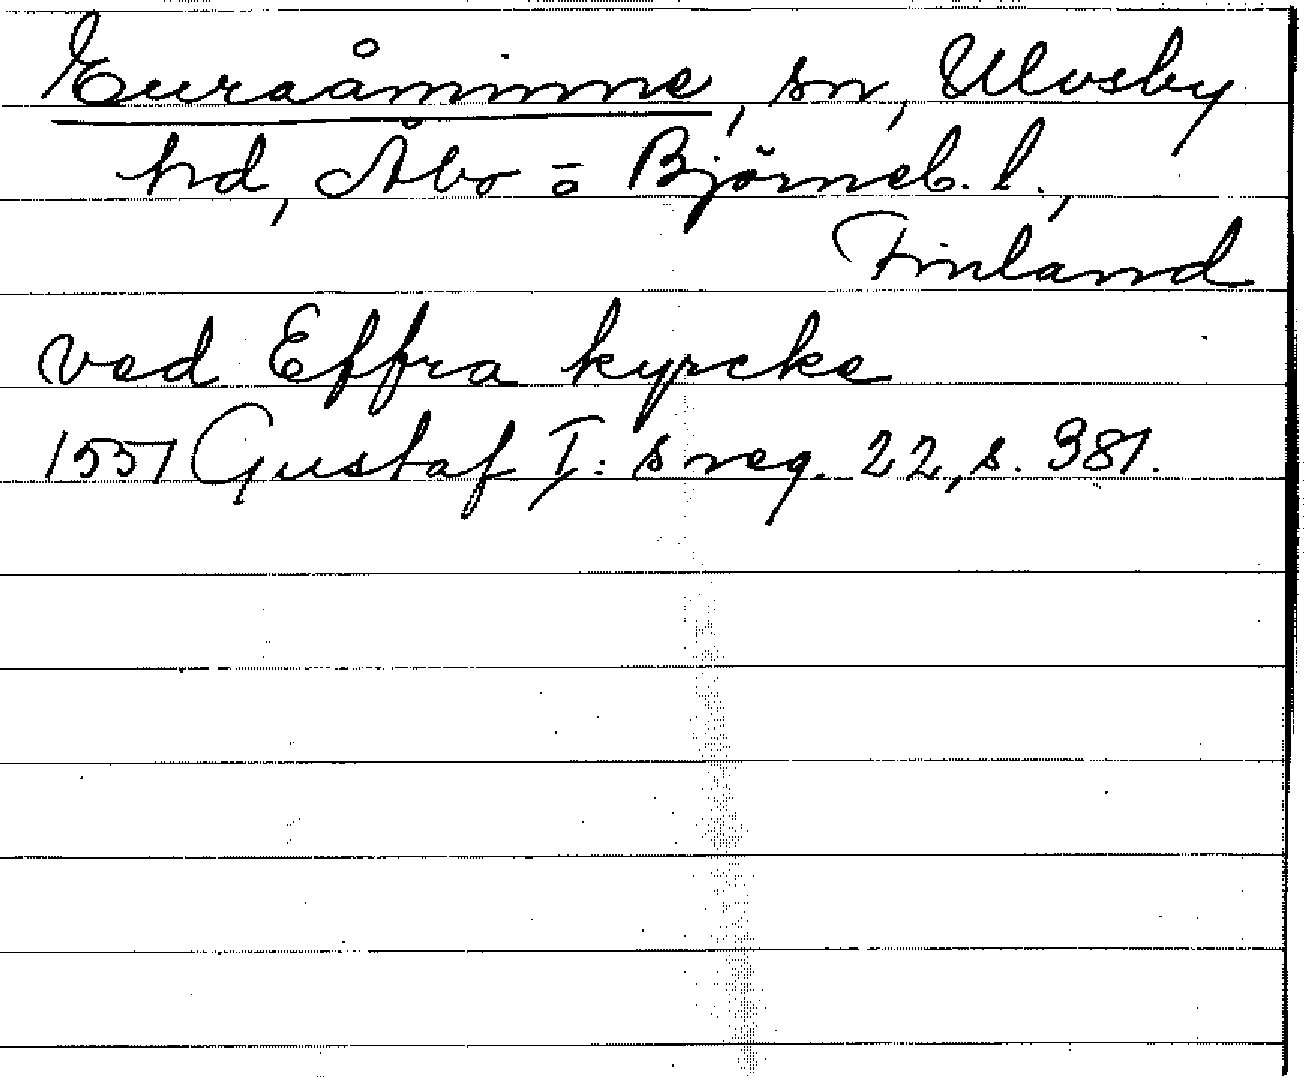 Euraåminne, sn, Ulvsby
hd, Åbo o Björneb. l.,
Finland
ved Effra kyrcke
1551 Gustaf I: s reg. 22, s. 381.